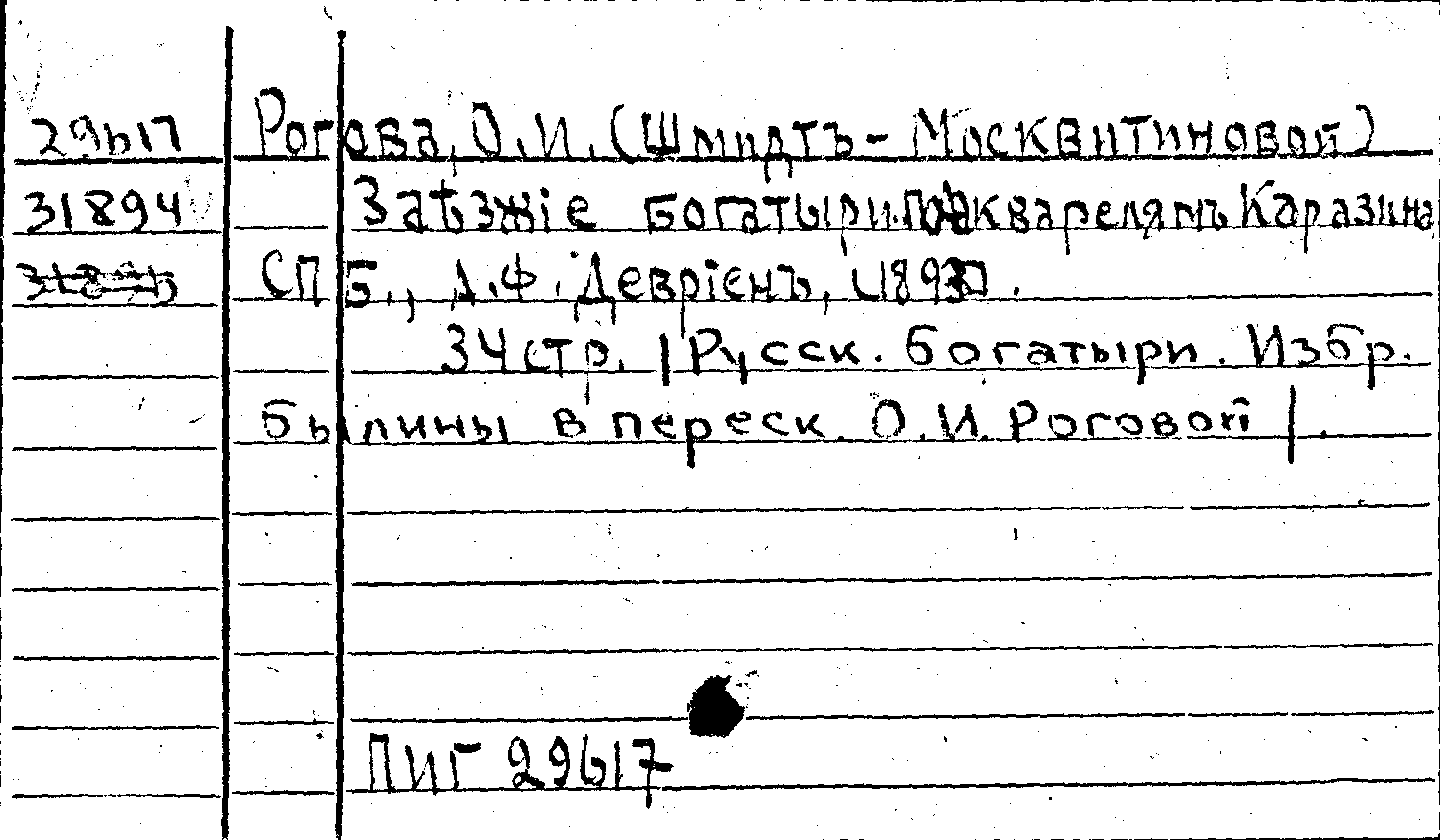 29617 Рогова, О.И. (Шмидтъ-Москвитиновой)
31894 Заѣзжіе богатыри. По акварелямъ Каразина
СПБ., А.Ф. Деврiенъ,
34 стр. |Русск. богатыри. Избр.
былины в переск. О.И. Роговой|.
ПИГ 29617